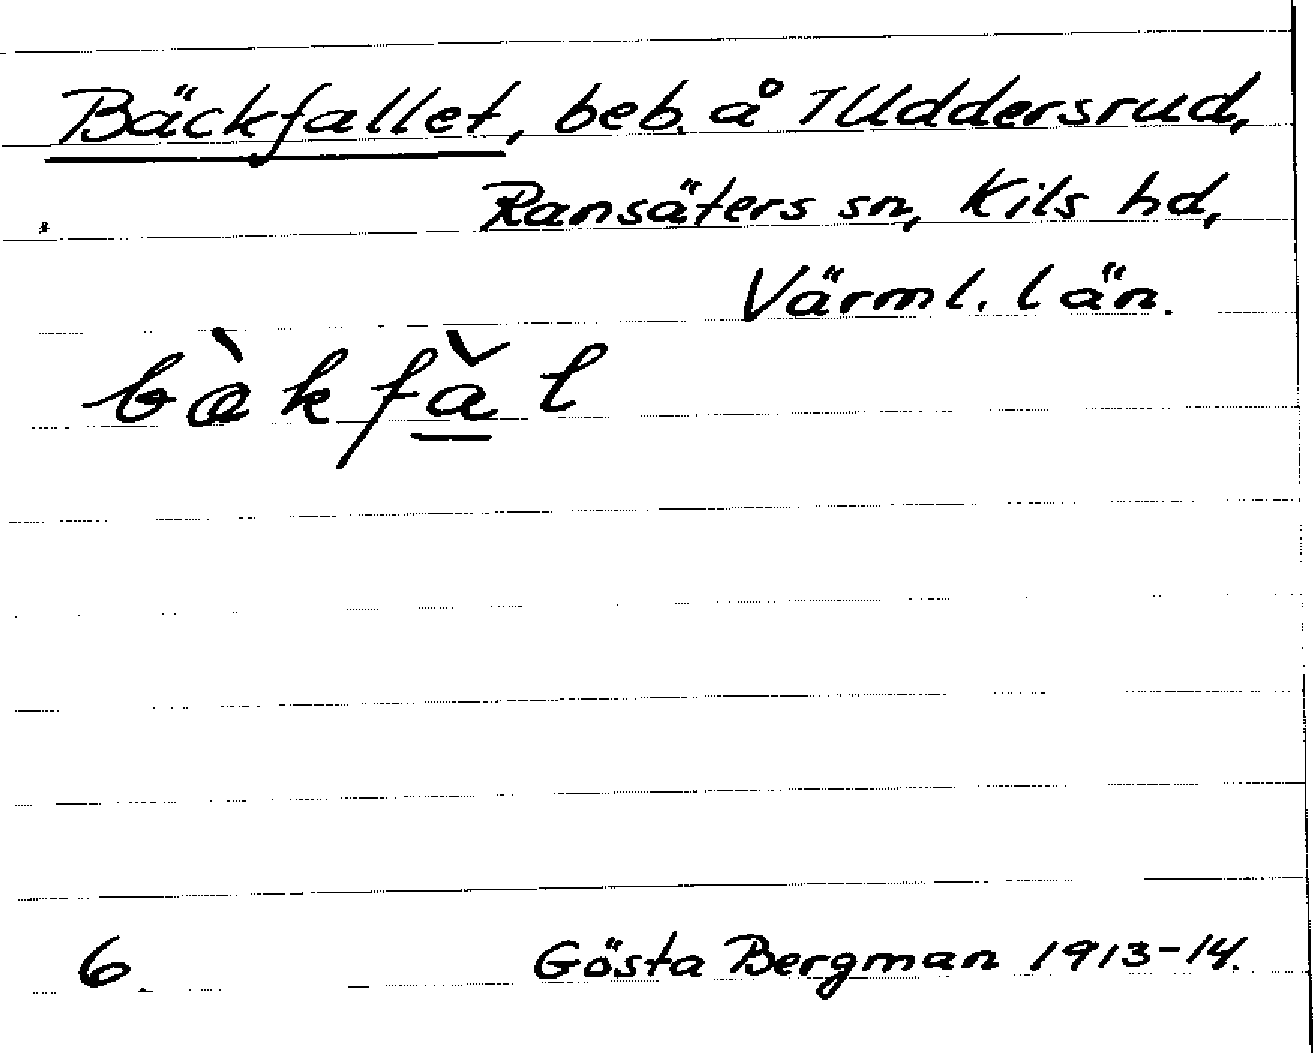 Bäckfallet, beb. å Tuddersrud,
Ransäters sn, Kils hd,
Värml. län.
bàkfǎl
6. Gösta Bergman 1913-14.